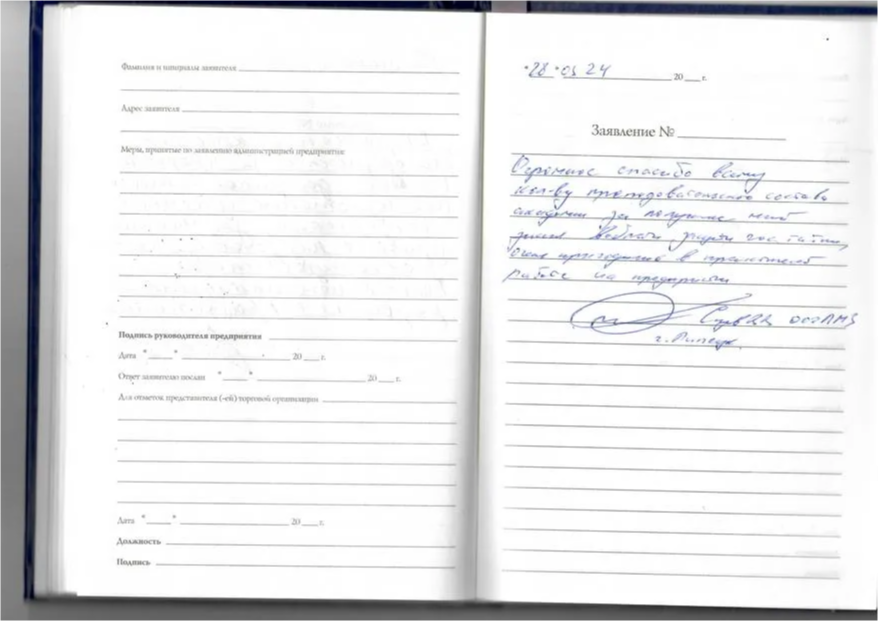 Фамилия и инициалы заявителя
Адрес заявителя
Меры, принятые по заявлению администрацией предприятия:
Подпись руководителя предприятия
Дата "____" ____ 20 ___ г.
Ответ заявителю послан "____" ____ 20 ___ г.
Для отметок представителя (-ей) торговой организации
Дата "____" ____ 20 ___ г.
Должность
Подпись
"28" 03 24 20 ___ г.
Заявление №
Огромное спасибо всему
кол-ву преподавательского состава
академии за
знания
очень в
работе на предприятии
ООО ЛМЗ
г. Липецк.